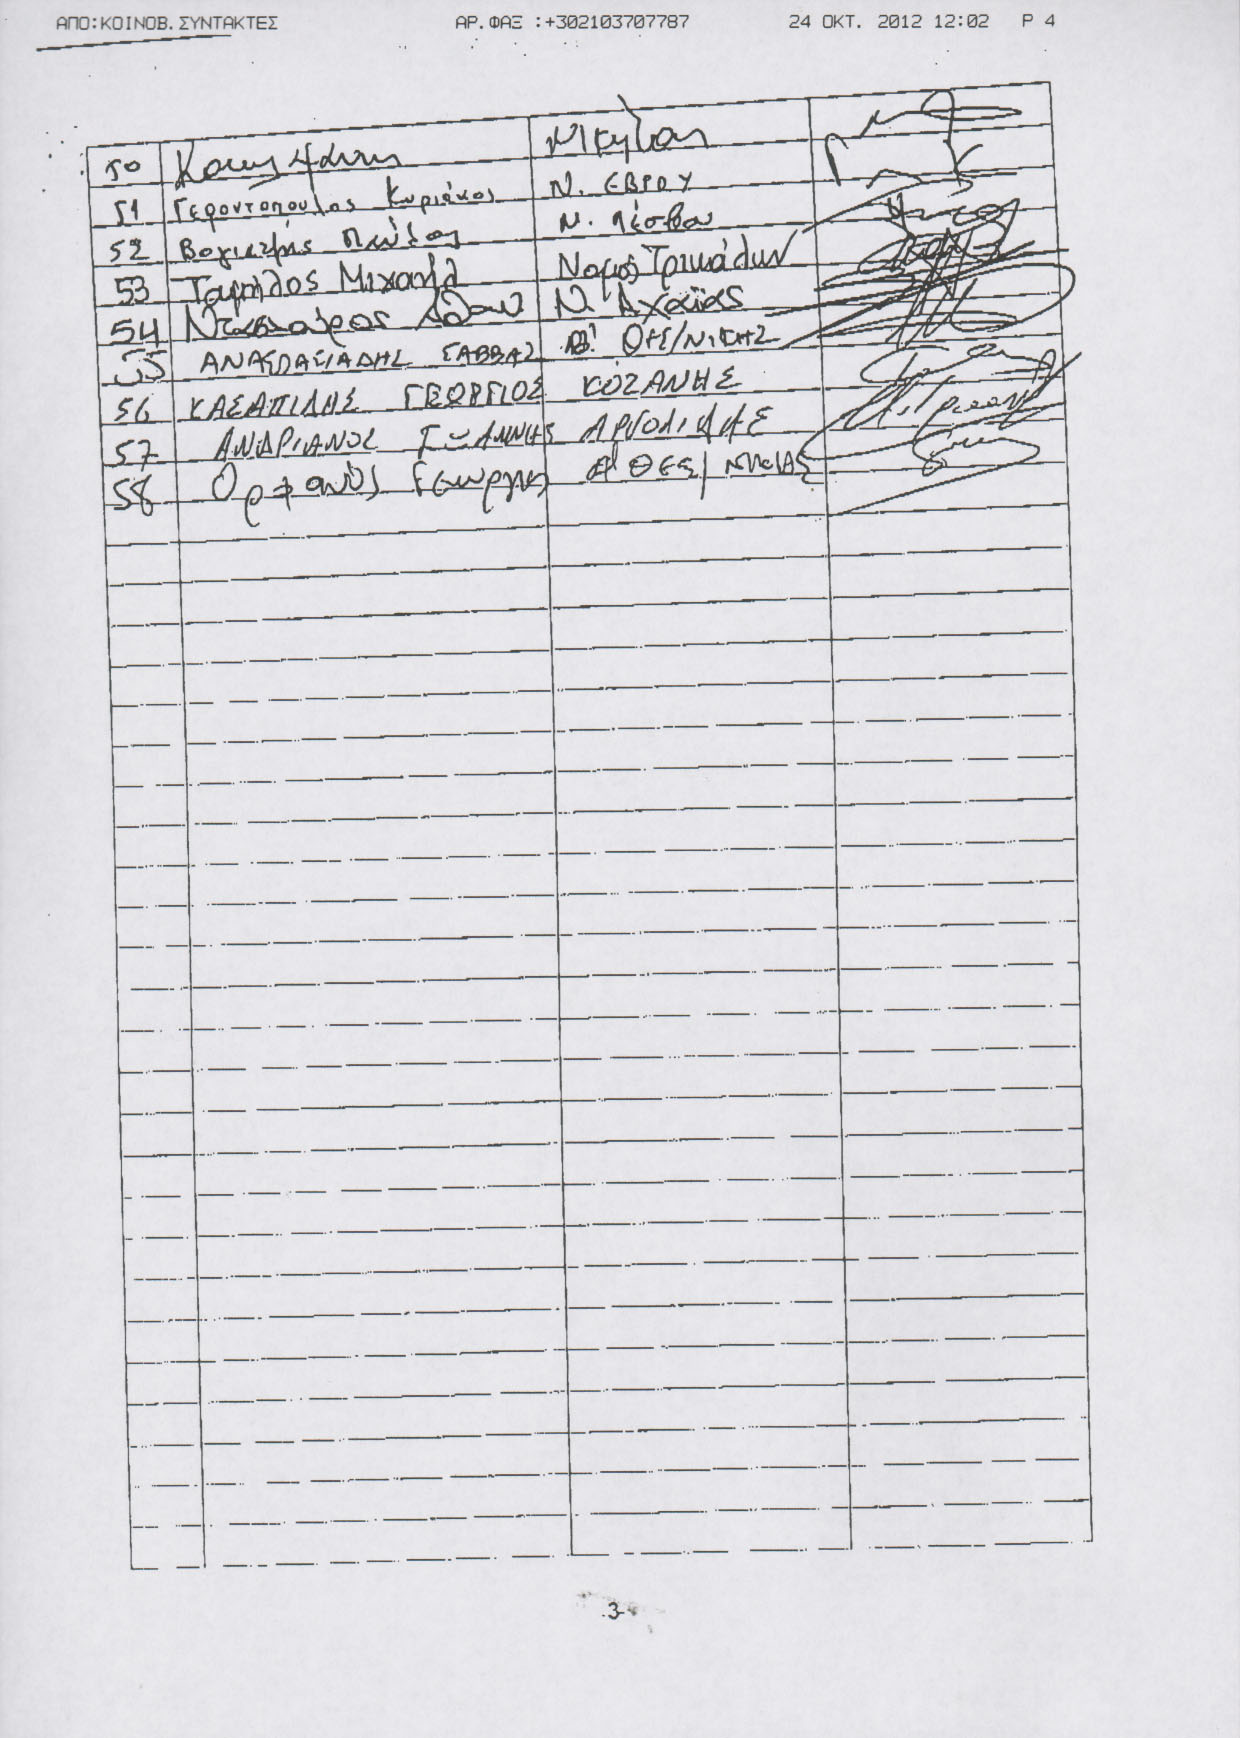 ΑΠΟ:ΚΟΙΝΟΒ.ΣΥΝΤΑΚΤΕΣ ΑΡ.ΦΑΞ :+302103707787 24 ΟΚΤ. 2012 12:02 P 4
50
51 Γεροντοπουλος Κυριάκος Ν. ΕΒΡΟΥ
52 Βογιατζής Παύλος Ν. Λέσβου
53 Ταμήλος Μιχαήλ Νομός Τρικάλων
54 Νταβλούρος Ν. Αχαΐας
55 ΑΝΑΣΤΑΣΙΑΔΗΣ ΣΑΒΒΑΣ Β' ΘΕΣ/ΝΙΚΗΣ
56 ΚΑΣΑΠΙΔΗΣ ΓΕΩΡΓΙΟΣ ΚΟΖΑΝΗΣ
57 ΑΝΔΡΙΑΝΟΣ ΙΩΑΝΝΗΣ ΑΡΓΟΛΙΔΑΣ
58 Ορφανός Γεώργιος
3-